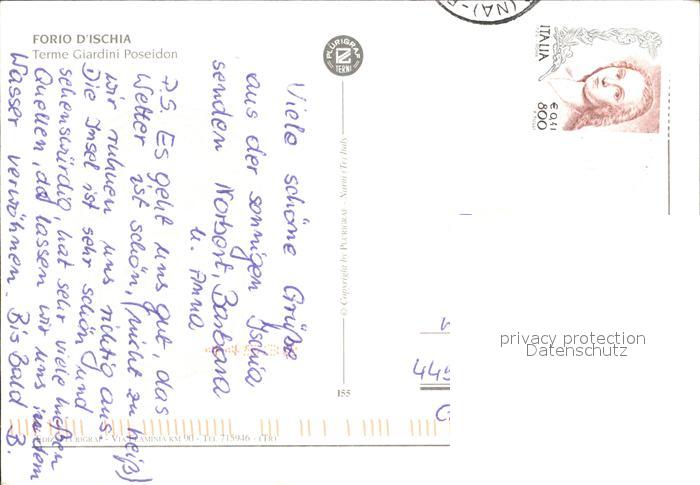 FORIO D'ISCHIA
Terme Giardini Poseidon
Viele schöne Grüße
aus der sonnigen Ischia
senden Norbert, Barbara
u. Anna
P.S. Es geht uns gut, das
Wetter ist schön, (nicht zu heiß)
wir ruhen uns richtig aus
Die Insel ist sehr schön und
sehenswürdig, hat sehr viele heißen
Quellen, da lassen wir uns in dem
Wasser verwöhnen. Bis Bald B.
PLURIGRAF
TERNI
© Copyright by PLURIGRAF - Narni (Tr) Italy
155
PLURIGRAF - VIA FLAMINIA KM 90 - TEL 715946 - (TR)
(NA)
ITALIA
€ 0,41
800
449
privacy protection
Datenschutz